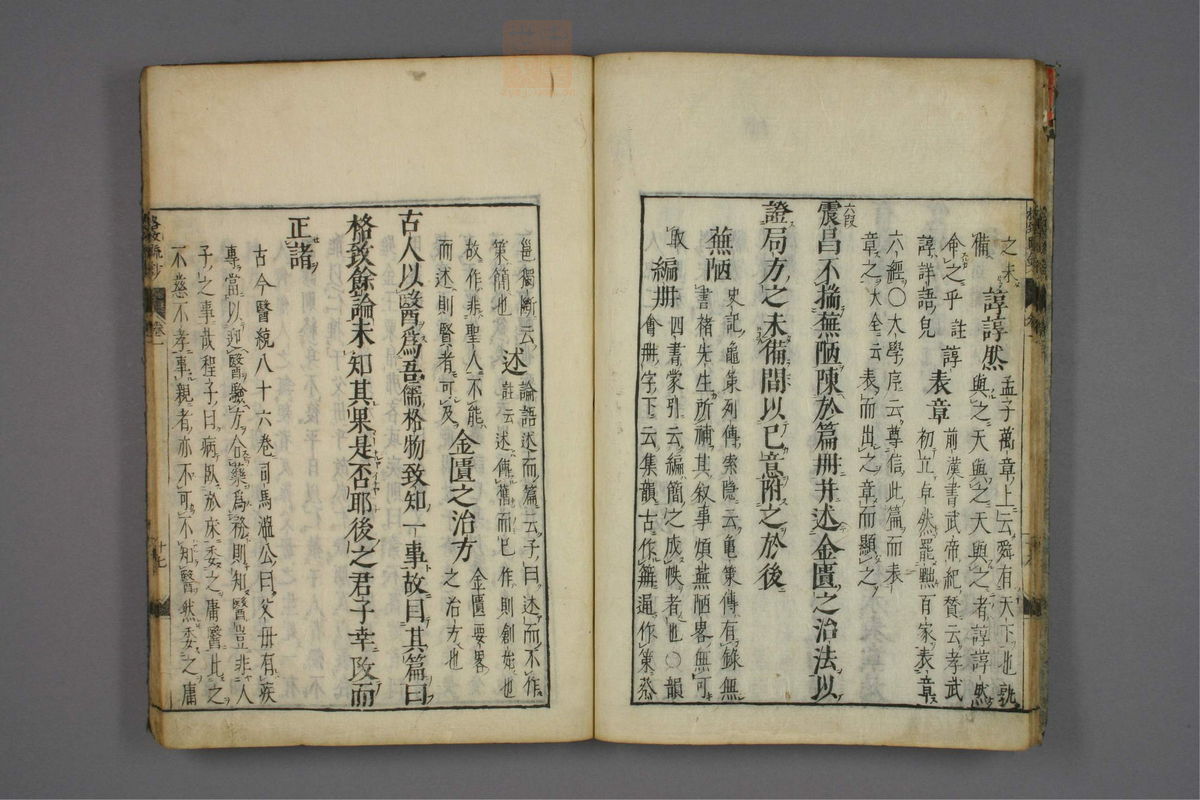 之未
備 諄諄然 孟子萬章上云舜有天下也孰
與之天與之天與之者諄諄然
命之乎註諄
諄詳語皃 表章 前漢書武帝紀賛云孝武
初立卓然罷黜百家表章
六經〇大學序云尊信此篇而表
章之大全云表而出之章而顯之
六段
震昌不揣蕪陋陳於篇冊并述金匱之治法以
證局方之未備間以已意附之於後
蕪陋 史記龜策列傳索隐云龜策傳有錄無
書褚先生所補其敘事煩蕪陋畧無可
取 編冊 四書蒙引云編簡之成帙者也〇韻
會冊字下云集韻古作
邕獨斷云
策簡也 述 論語述而篇云子曰述而不作
註云述傳舊而已作則創始也
故作非聖人不能
而述則賢者可及 金匱之治方 金匱要畧
之治方也
古人以醫爲吾儒格物致知一事故目其篇曰
格致餘論未知其果是否耶後之君子幸攺而
正諸
古今醫統八十六卷司馬溫公曰父母有疾
專當以迎醫驗方合藥爲務則知醫豈非人
子之事哉程子曰病臥於床委之庸醫比之
不慈不孝事親者亦不可不知醫然委之庸
卷一
十七